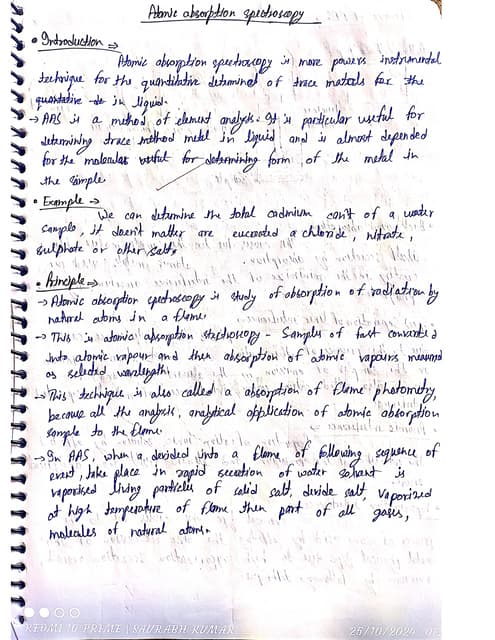 Atomic absorption spectroscopy
• Introduction →
Atomic absorption spectroscopy is more powers instrumental
technique for the quantitative determined of trace matels for the
quantative de in liquid.
→ AAS is a method of element analysis. It is particular useful for
determining trace method metel in liquid and is almost depended
for the molecular useful for determining form of the metal in
the sample.
• Example →
We can determine the total cadmium con't of a water
sample, it doesn't matter are a chloride, nitrate,
sulphate or other salt.
• Principle →
→ Atomic absorption spectroscopy is study of absorption of radiation by
natural atoms in a flame.
→ This is atomic absorption - Samples of fast converted
into atomic vapour and then absorption of atomic vapours measured
as selected wavelength
→ This technique is also called a absorption of flame photometry,
because all the analysis, analytical application of atomic absorption
sample to the flame.
→ In AAS, when a decided into a flame of following sequence of
event, take place in rapid secation of water solvent is
vaporised living particles of solid salt, devide salt, vaporized
at high temperature of flame then part of all gases,
molecules of natural atoms.
REDMI 10 PRIME | SAURABH KUMAR
25/10/2024